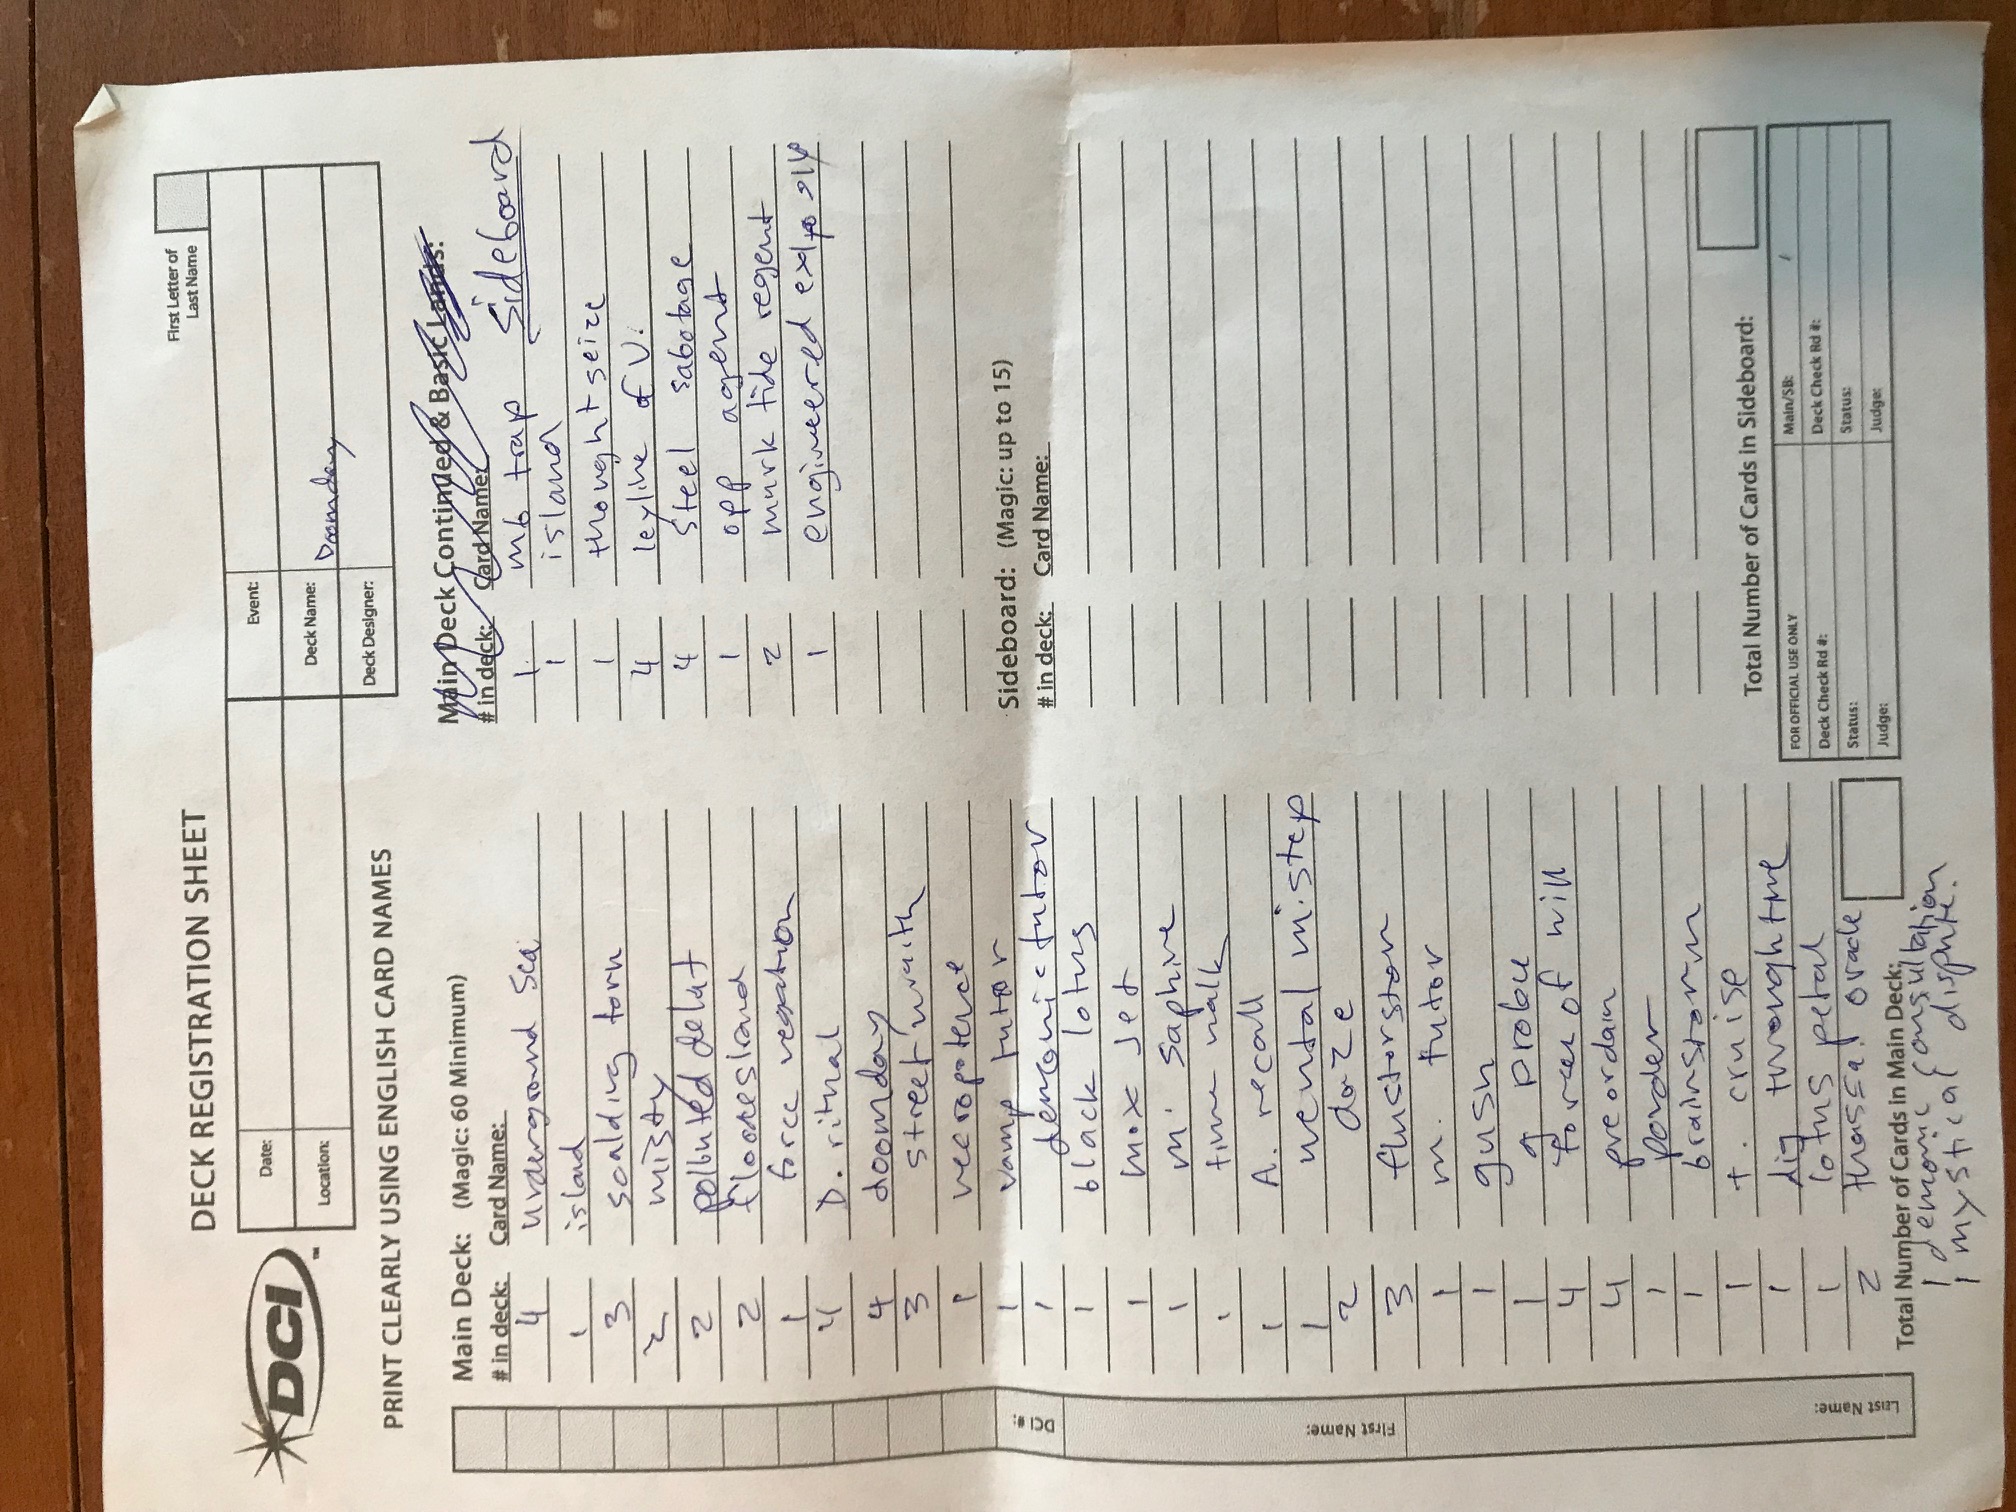 First Letter of
Last Name
DECK REGISTRATION SHEET
DCI
™
Date:
Event:
Location:
Deck Name: Doomday
Deck Designer:
PRINT CLEARLY USING ENGLISH CARD NAMES
Main Deck: (Magic: 60 Minimum)
# in deck: Card Name:
4 underground Sea
1 island
3 scalding tarn
2 misty
2 polluted delat
2
1 force
4 D. ritual
4 doomday
3 street wraith
1 necropotence
1 vamp tutor
1 demonic tutor
1 black lotus
1 mox Jet
1 m. saphire
1 time walk
1 A. recall
1 mental mistep
2 daze
3
1 m. tutor
1 gush
1 g probe
4 forces of will
4 preordain
1 ponder
1 brainstorm
1 t. cruise
1 dig
1 lotus petal
2 thassa. oracle
Total Number of Cards in Main Deck:
1 demonic consultation
1 mystical dispute.
DCI #:
First Name:
Last Name:
Main Deck Continued & Basic Lands:
# in deck: Card Name:
1. mb trap Sideboard
1 island
1 thoughtseize
4 leyline of V.
4 steel sabotage
1 opp agent
2 murk tide regent
1 engineered
Sideboard: (Magic: up to 15)
# in deck: Card Name:
Total Number of Cards in Sideboard:
FOR OFFICIAL USE ONLY
Main/SB: /
Deck Check Rd #:
Deck Check Rd #:
Status:
Status:
Judge:
Judge: